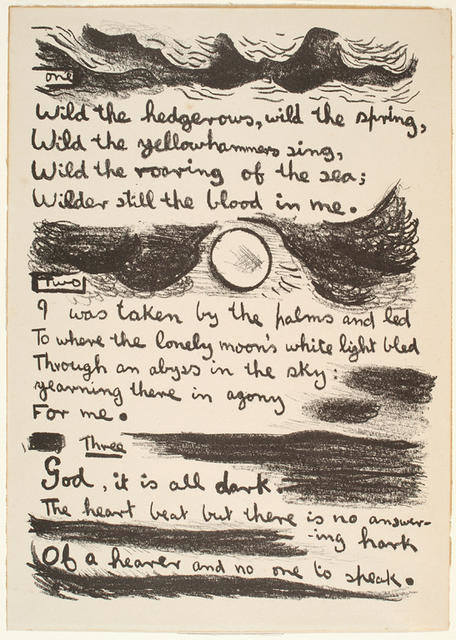 one
Wild the hedgerows, wild the spring,
Wild the yellowhammers sing,
Wild the roaring of the sea;
Wilder still the blood in me.
Two
I was taken by the palms and led
To where the lonely moon's white light bled
Through an abyss in the sky:
yearning there in agony
For me.
Three
God, it is all dark.
The heart beat but there is no answer-
-ing hark
Of a hearer and no one to speak.